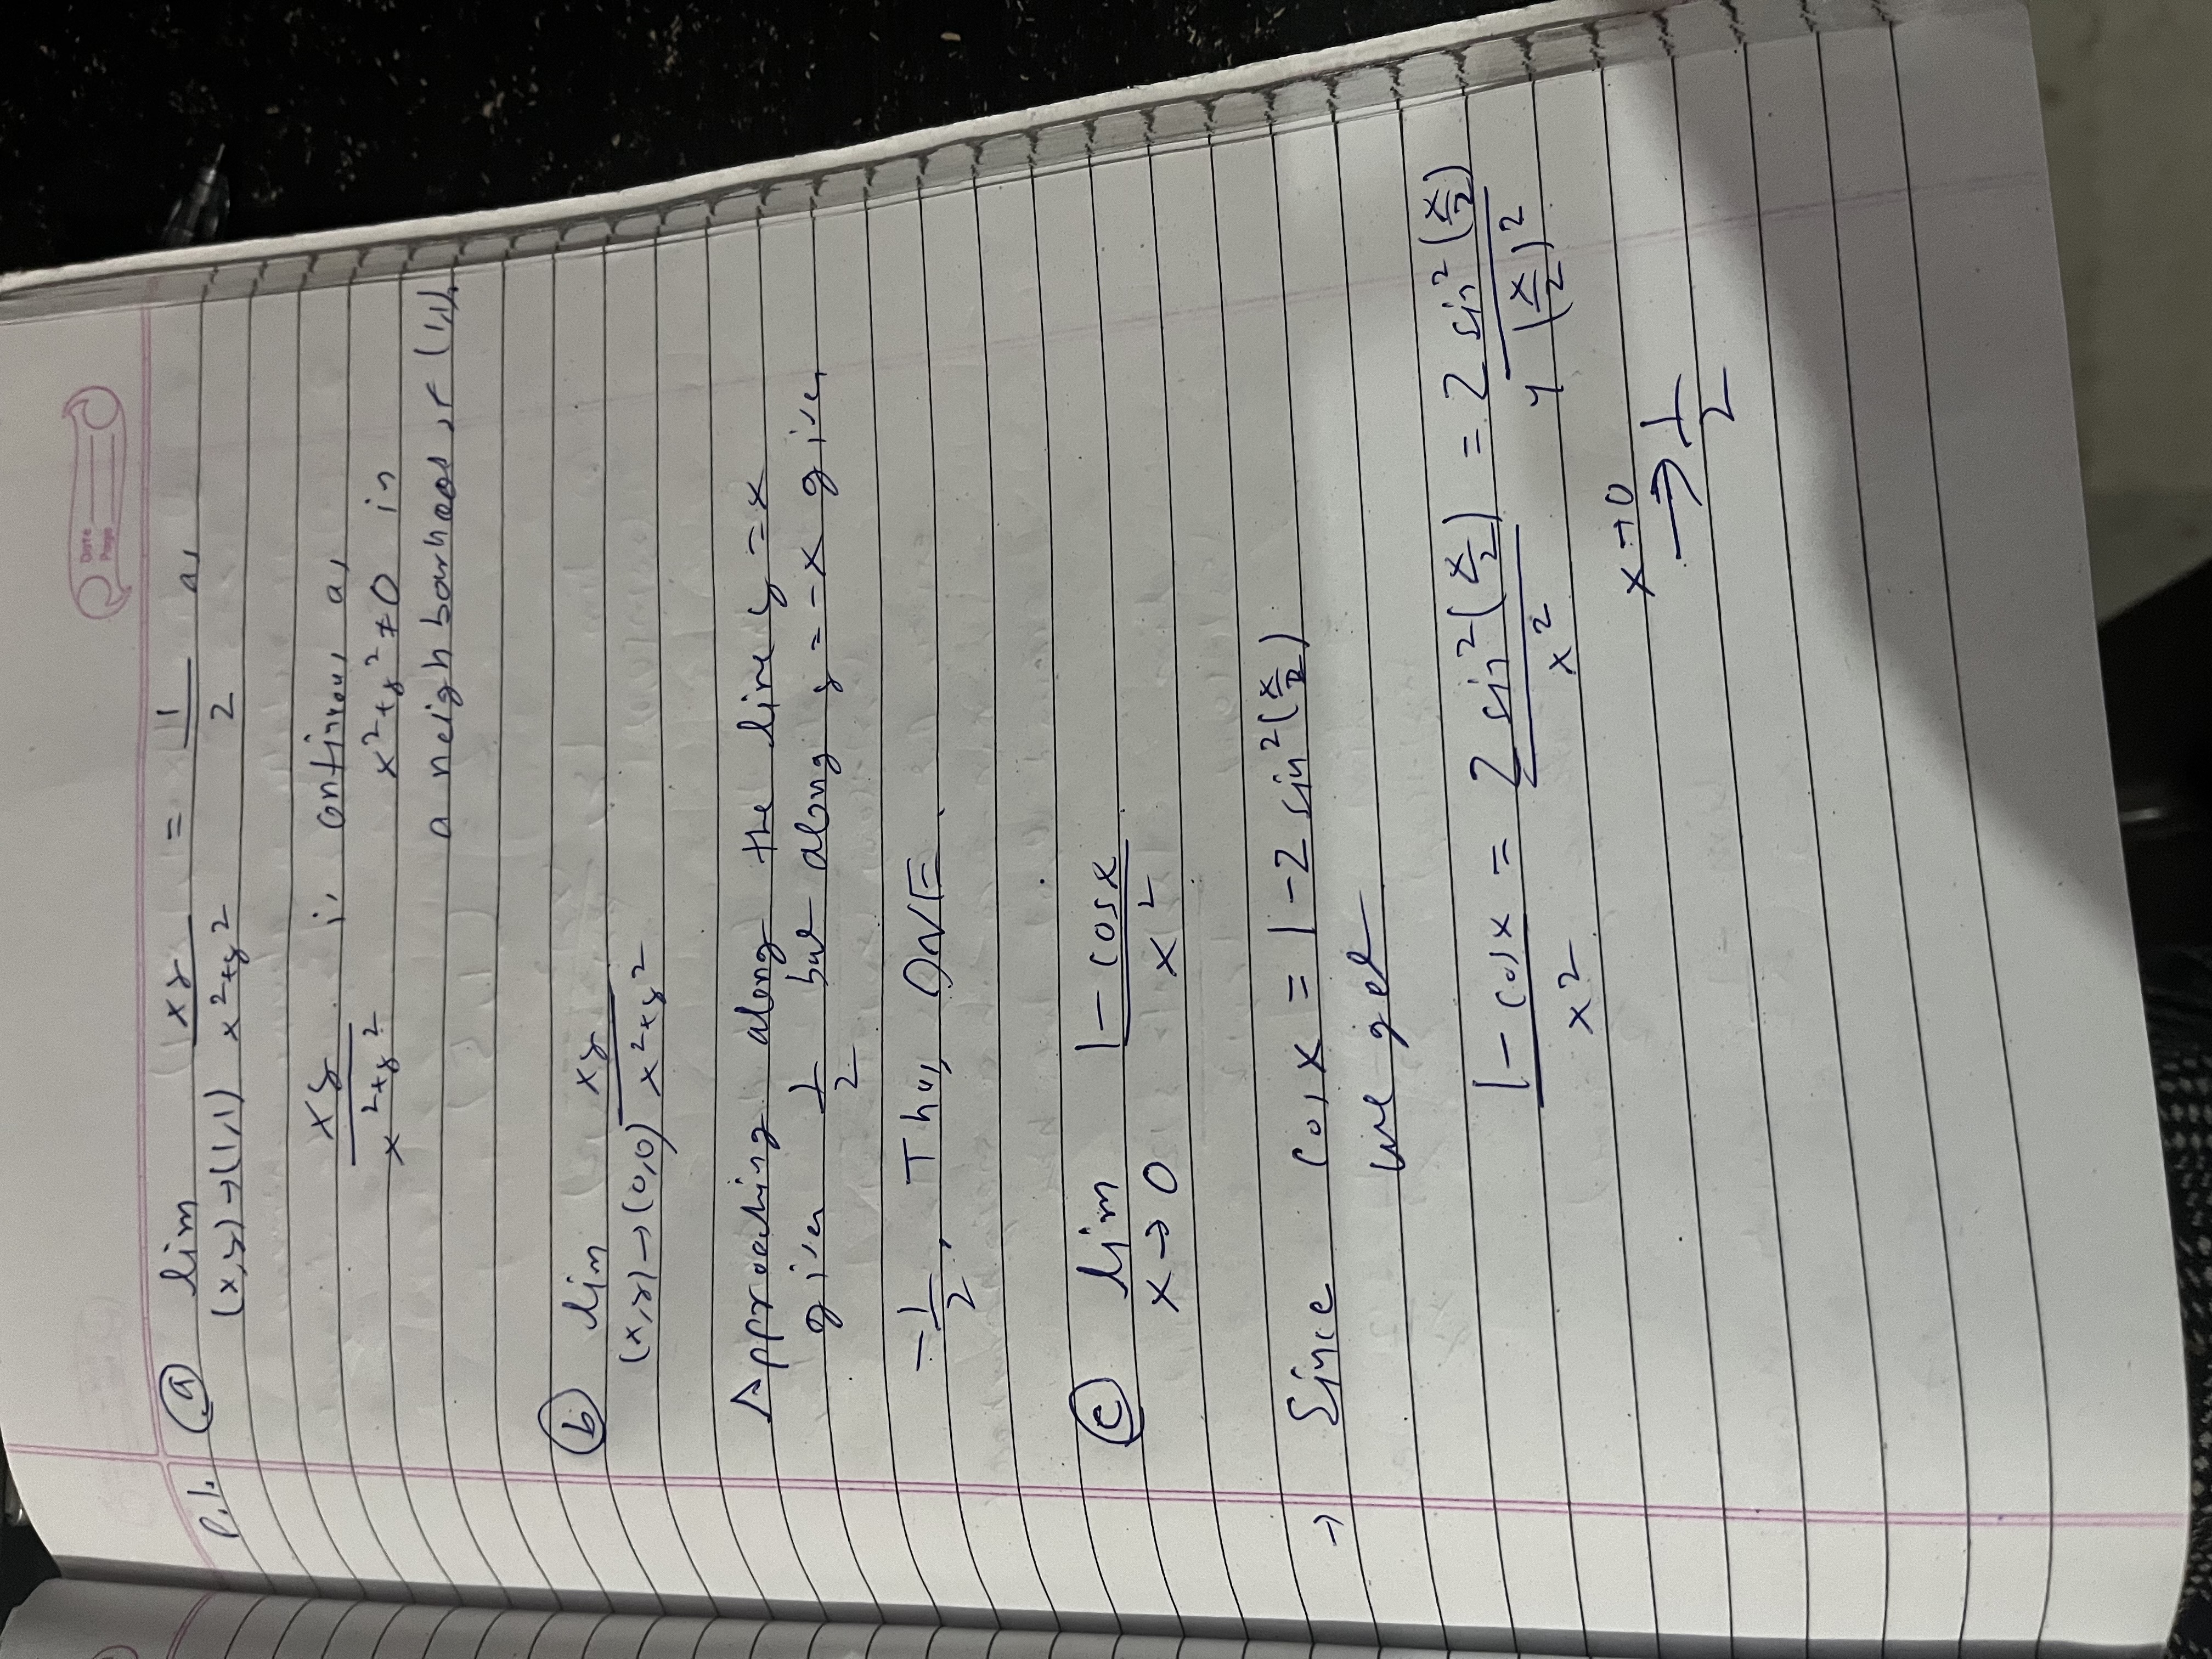 Date
Page
P.1. (a) lim (x,y)→(1,1) xy/(x²+y²) = 1/2 as
xy/(x²+y²) is continuous as
x²+y²≠0 in
a neighbourhood of (1,1).
(b) lim (x,y)→(0,0) xy/(x²+y²)
Approaching along the line y=x
gives 1/2 but along y=-x gives
-1/2. Thus DNE.
(c) lim x→0 (1-cosx)/x²
→ Since cosx = 1-2sin²(x/2)
we get
(1-cosx)/x² = 2sin²(x/2)/x² = 2sin²(x/2)/4(x/2)²
x→0
→ 1/2